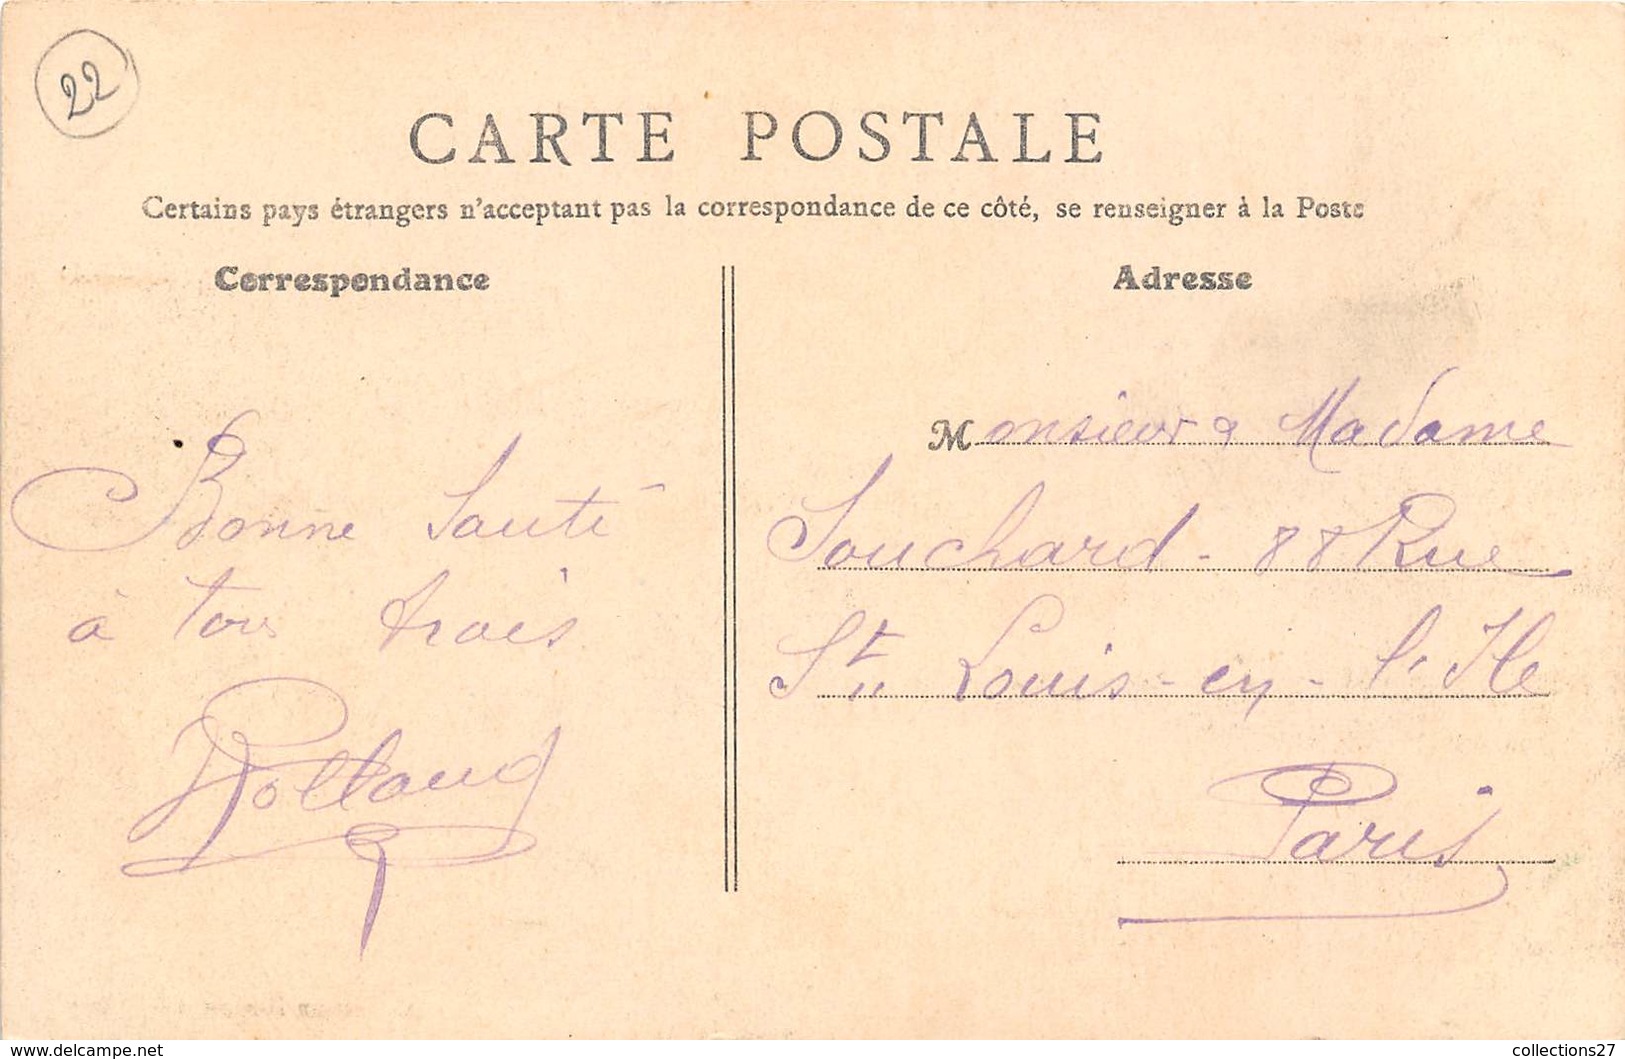 22
CARTE POSTALE
Certains pays étrangers n'acceptant pas la correspondance de ce côté, se renseigner à la Poste
Correspondance
Bonne Santé
à tous trois
Rolland
Adresse
Monsieur & Madame
Souchard - 88 Rue
St Louis-en-l'Ile
Paris
www.delcampe.net
collections27